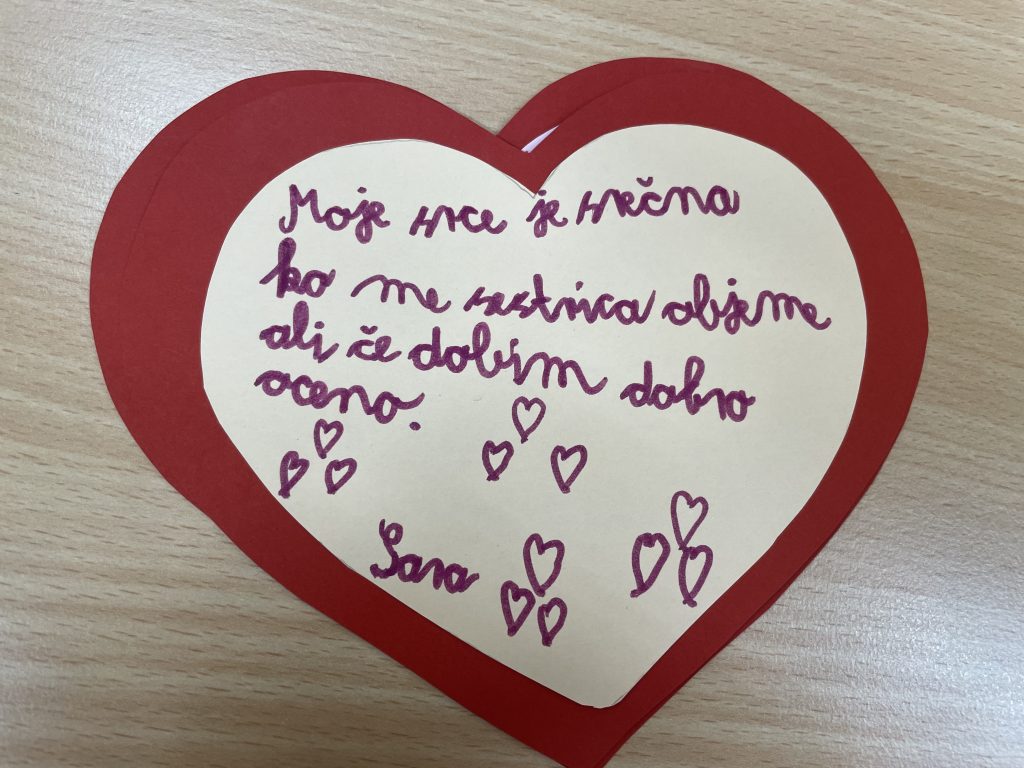 Moje srce je srečna
ko me sestrica objeme
ali če dobim dobro
oceno.
Sara